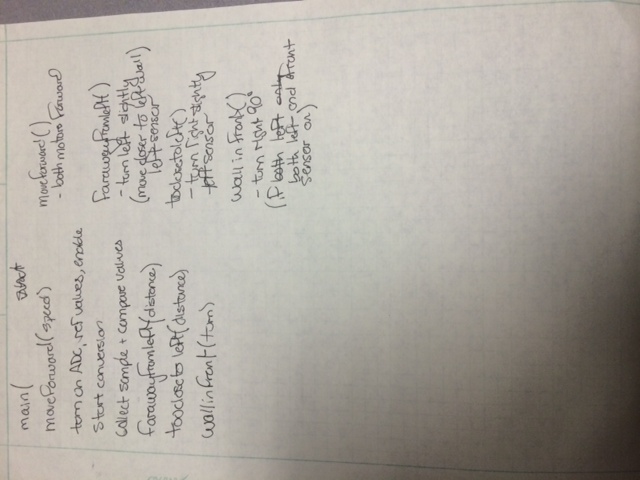 main(
moveForward(speed)
turn on ADC, ref values, enable
Start conversion
collect sample + compare values
farawayfromleft(distance)
tooclose to left(distance)
wallinfront(turn)
moveforward()
- both motors forward
farawayfromleft()
- turn left slightly
(move closer to left wall)
left sensor
toclosetoleft()
- turn right slightly
left sensor
wall in front()
- turn right 90°
(if both left only
both left and front
sensor on)